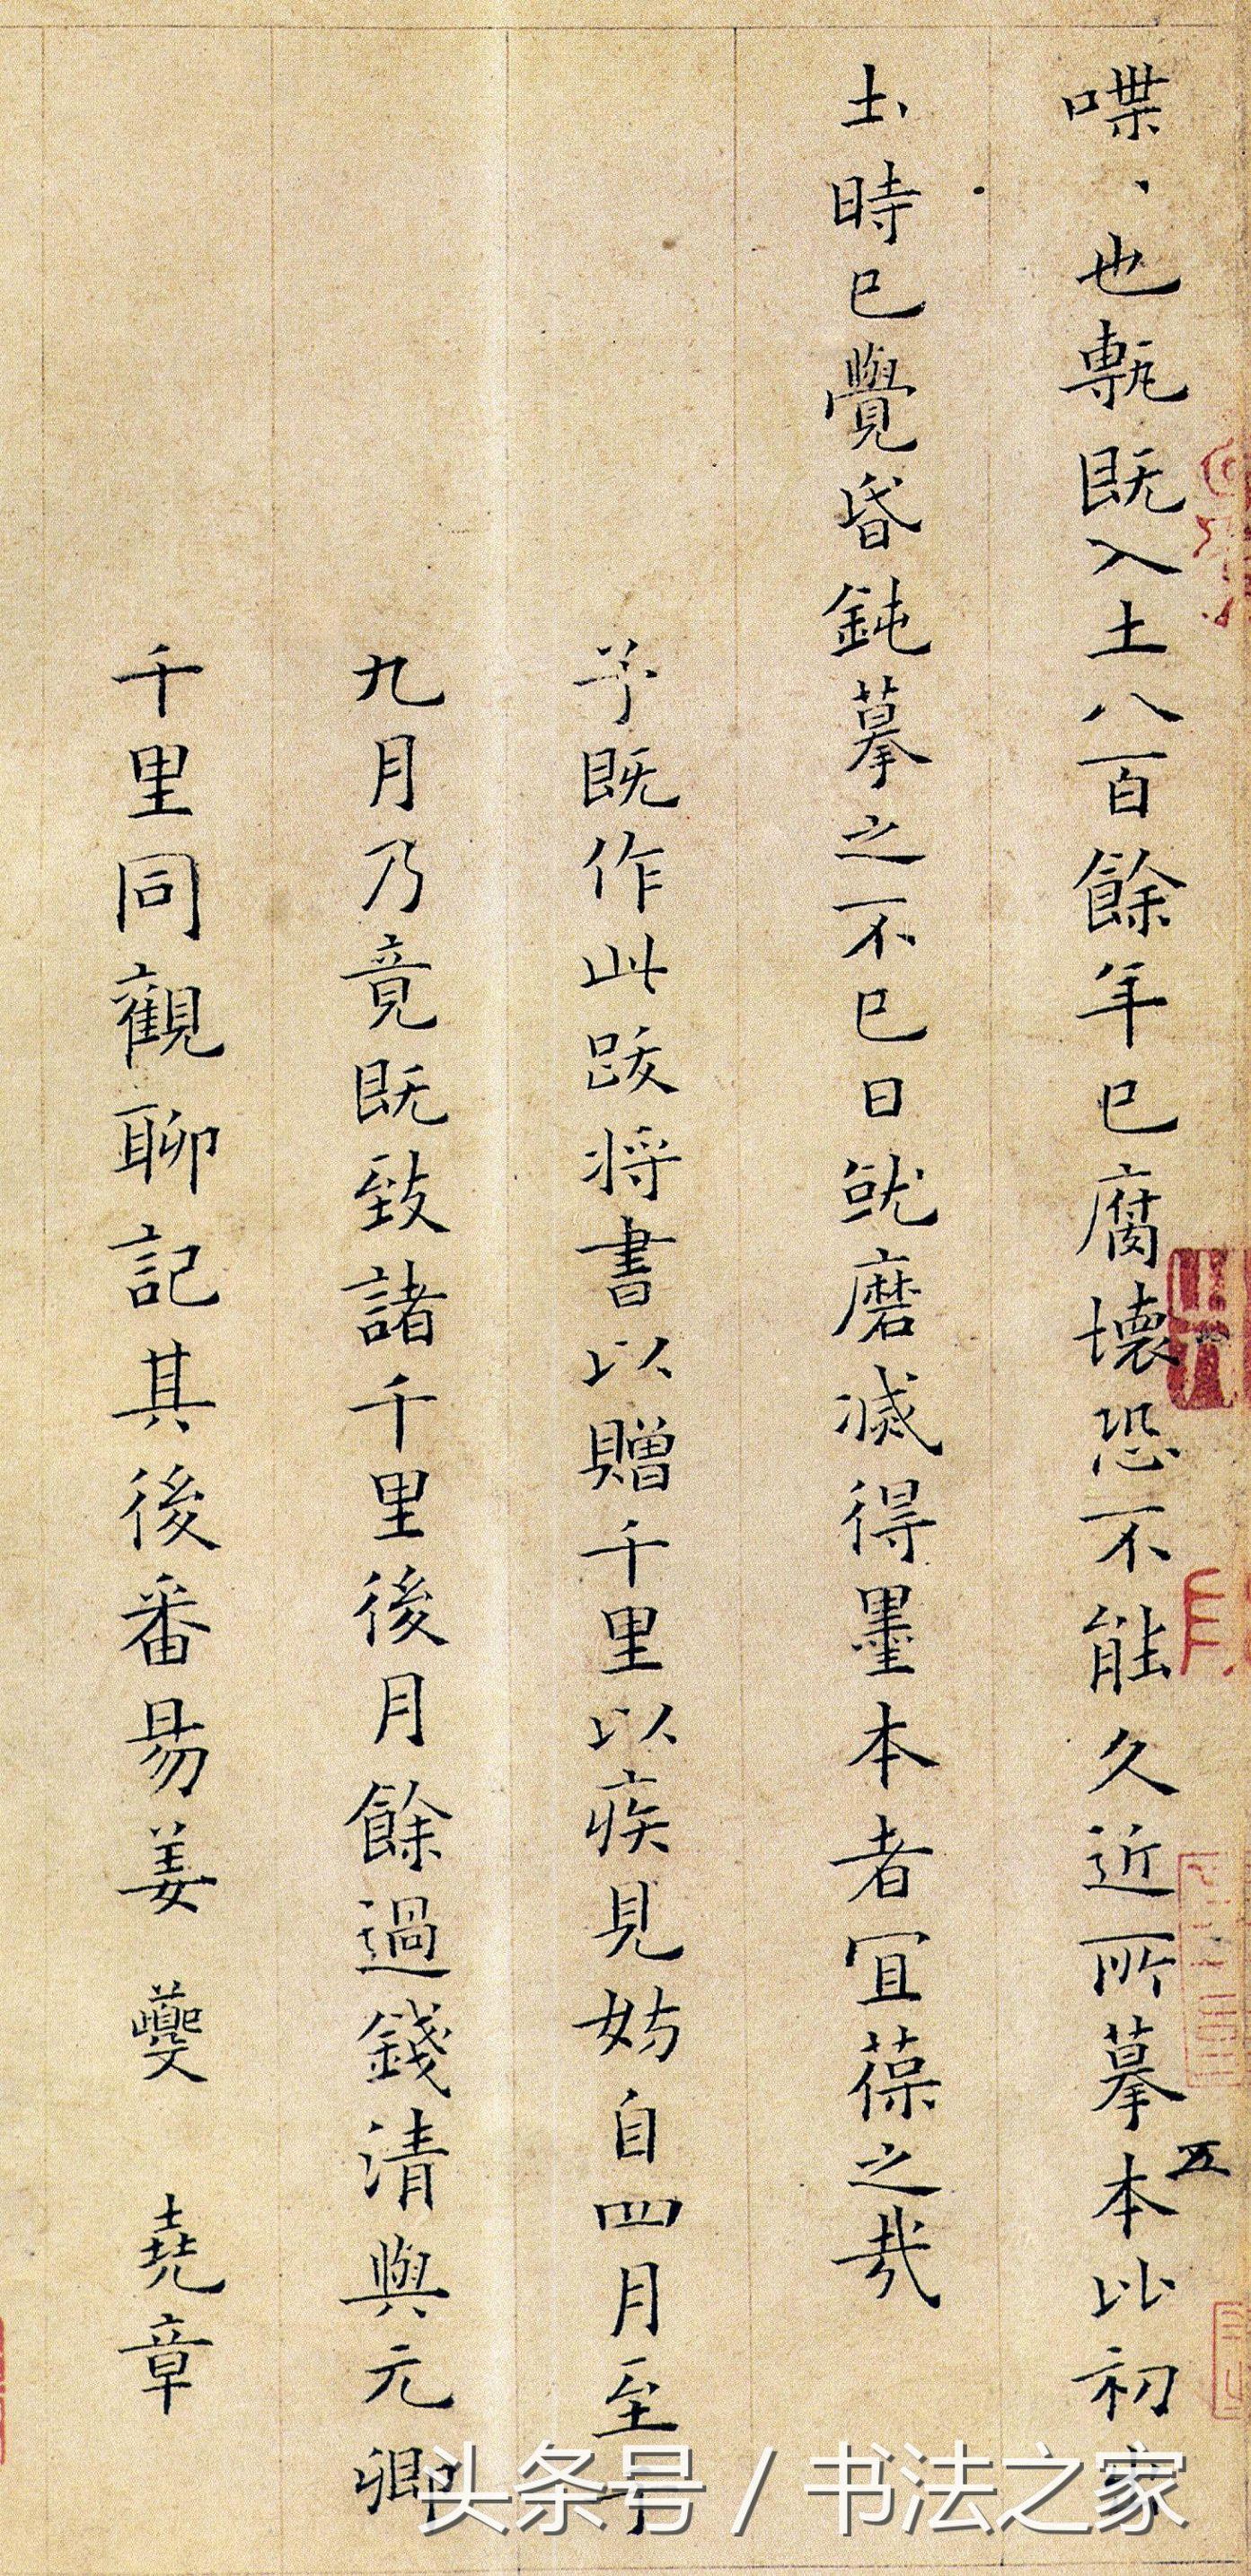 喋、也甎既入土八百餘年已腐壞恐不能久近所摹本比初
土時已覺昏鈍摹之不已日就磨滅得墨本者宜葆之哉
予既作此跋將書以贈千里以疾見妨自四月至
九月乃竟既致諸千里後月餘過錢清與元卿
千里同觀聊記其後番昜姜夔堯章
五
头条号 / 书法之家